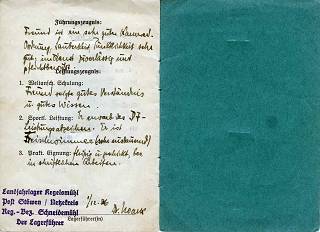 Führungszeugnis:
Freund ist ein sehr guter Kamerad.
Ordnung, Sauberkeit, Pünktlichkeit sehr
gut; zuverlässig und
pflichtbewußt.
Leistungszeugnis:
1. Weltansch. Schulung:
Freund zeigte gutes Verständnis
u. gutes Wissen.
2. Sportl. Leistung: Er erwarb das DJ-
Leistungsabzeichen. Er ist
Freischwimmer
3. Prakt. Eignung: fleißig u. geschickt, bes.
in schriftlichen Arbeiten.
Landjahrlager Kegelsmühl
Post Stöwen / Netzekreis
Reg.-Bez. Schneidemühl
Der Lagerführer
/12. 36
Lagerführer(in)